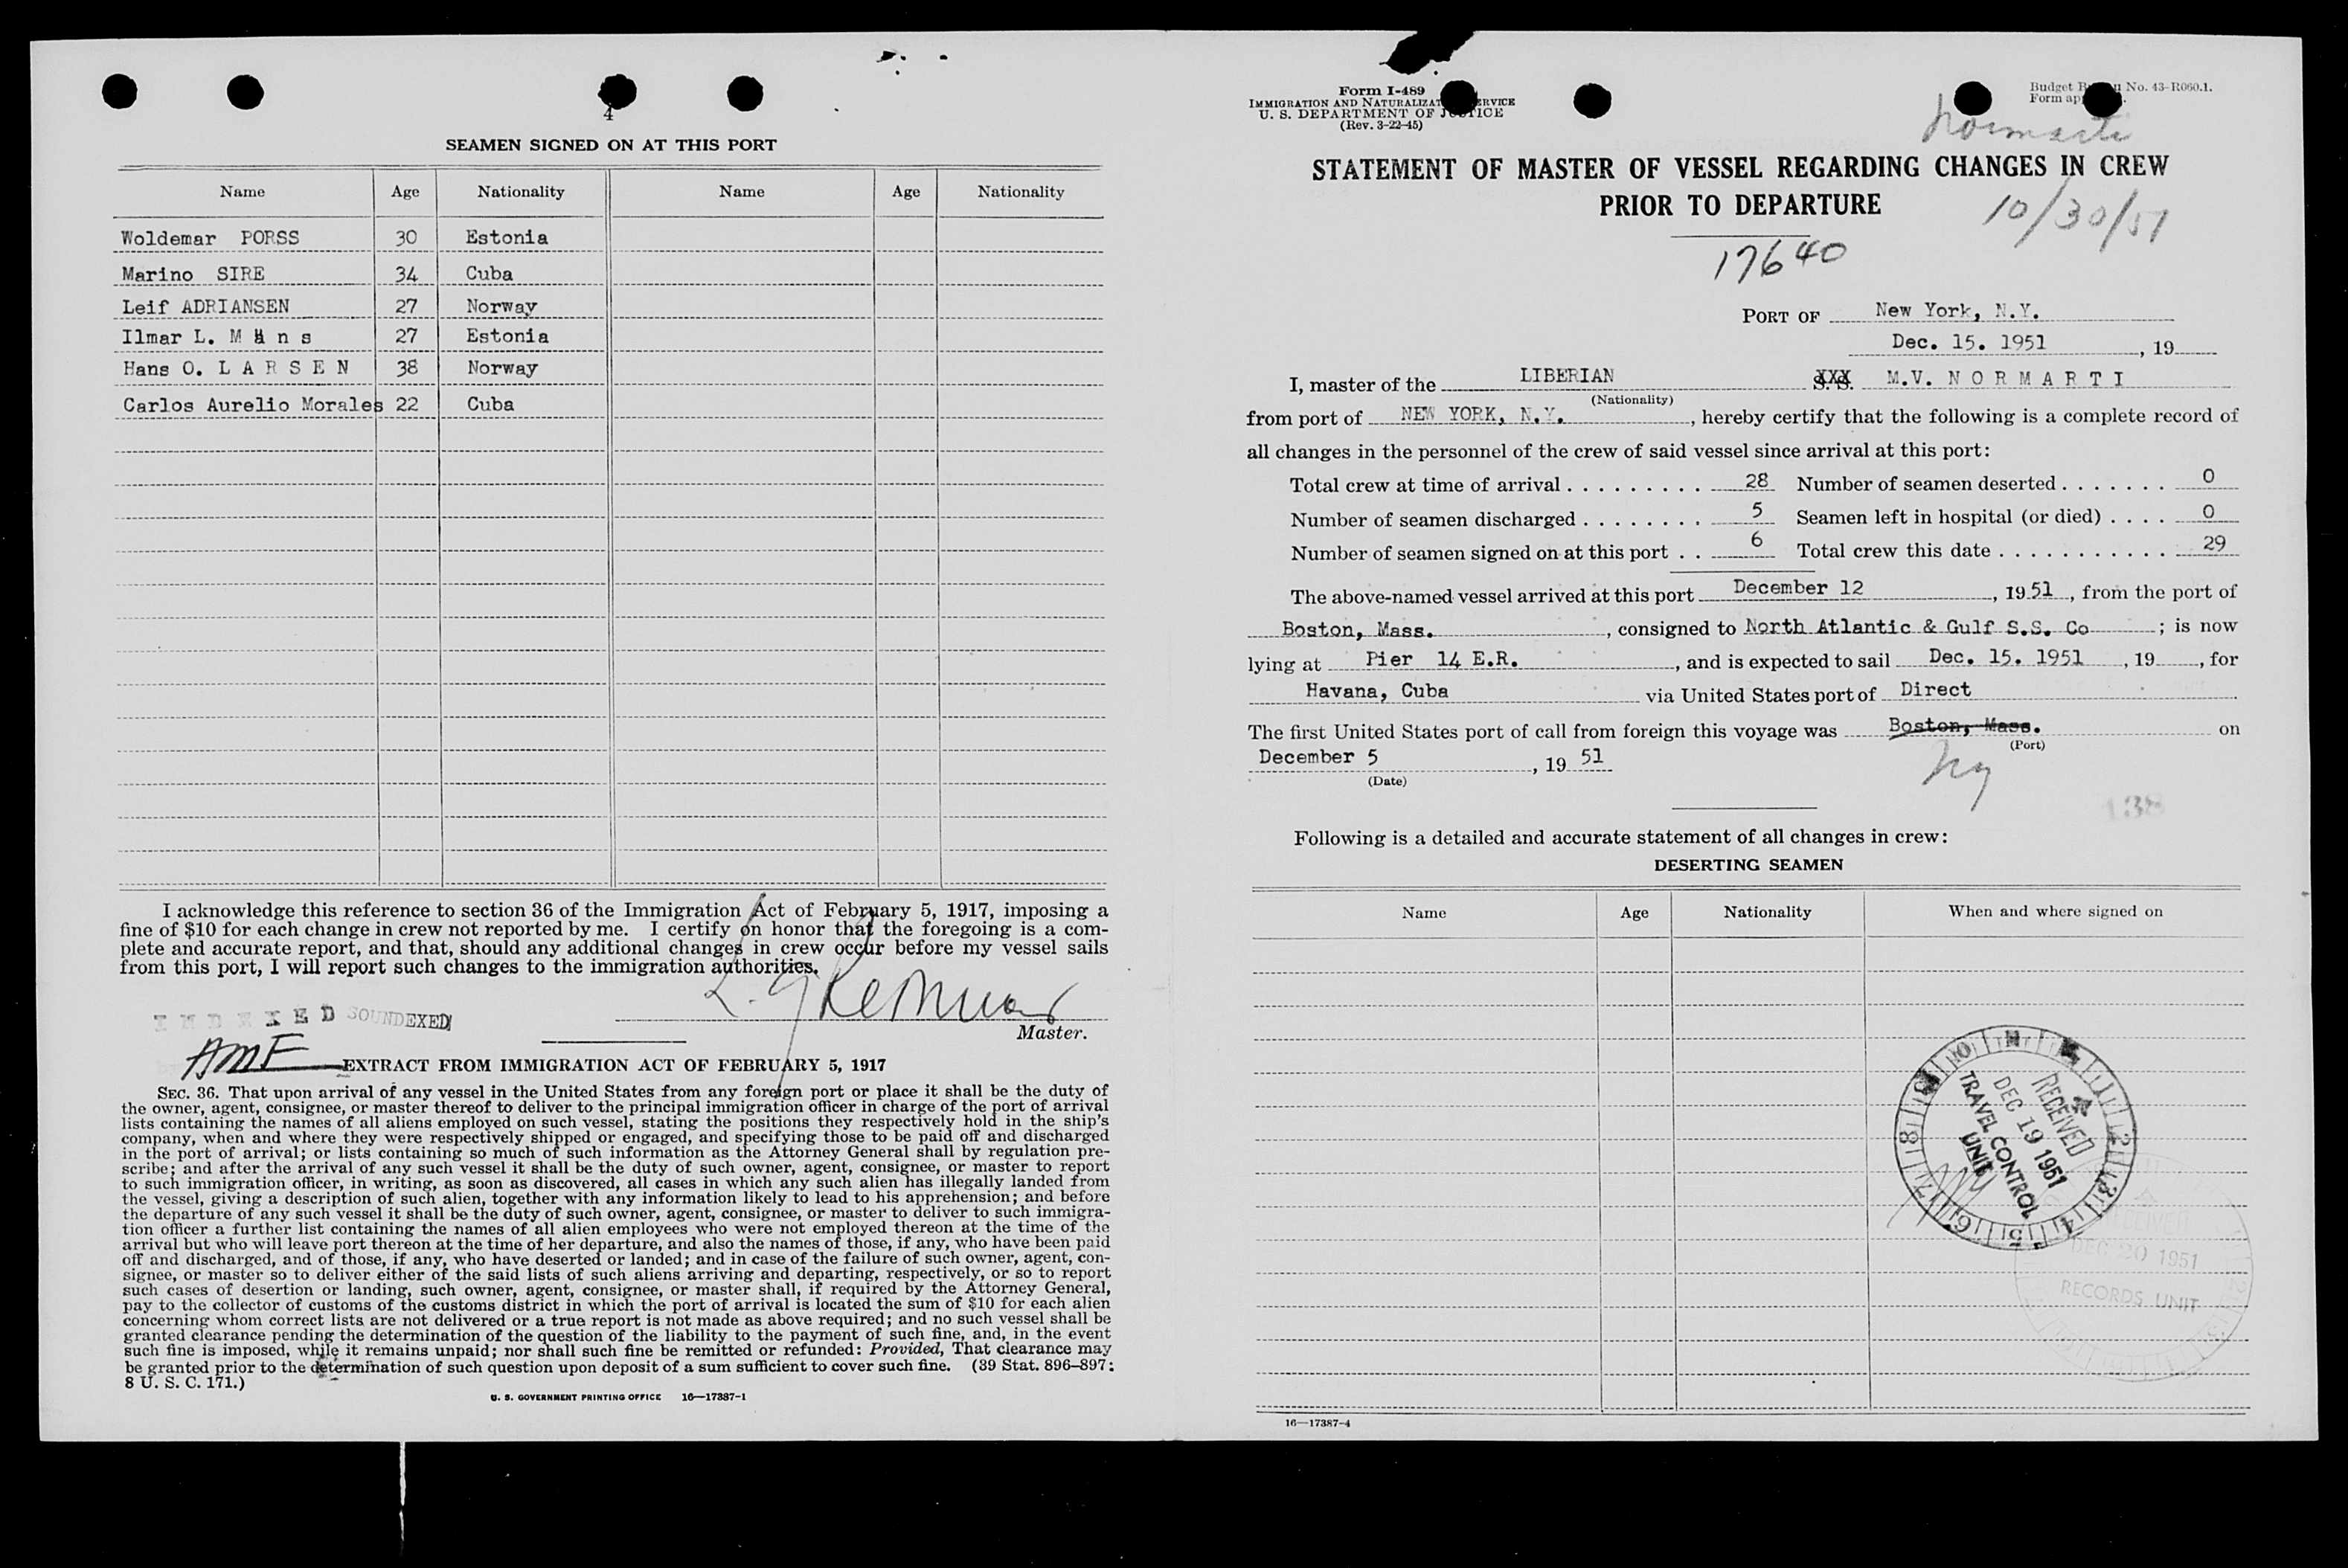 4
SEAMEN SIGNED ON AT THIS PORT
Name Age Nationality Name Age Nationality
Woldemar PORSS 30 Estonia
Marino SIRE 34 Cuba
Leif ADRIANSEN 27 Norway
Ilmar L. M ä n s 27 Estonia
Hans O. L A R S E N 38 Norway
Carlos Aurelio Morales 22 Cuba
I acknowledge this reference to section 36 of the Immigration Act of February 5, 1917, imposing a
fine of $10 for each change in crew not reported by me. I certify on honor that the foregoing is a com-
plete and accurate report, and that, should any additional changes in crew occur before my vessel sails
from this port, I will report such changes to the immigration authorities.
INDEXED SOUNDEXED
Master.
AMF
EXTRACT FROM IMMIGRATION ACT OF FEBRUARY 5, 1917
SEC. 36. That upon arrival of any vessel in the United States from any foreign port or place it shall be the duty of
the owner, agent, consignee, or master thereof to deliver to the principal immigration officer in charge of the port of arrival
lists containing the names of all aliens employed on such vessel, stating the positions they respectively hold in the ship's
company, when and where they were respectively shipped or engaged, and specifying those to be paid off and discharged
in the port of arrival; or lists containing so much of such information as the Attorney General shall by regulation pre-
scribe; and after the arrival of any such vessel it shall be the duty of such owner, agent, consignee, or master to report
to such immigration officer, in writing, as soon as discovered, all cases in which any such alien has illegally landed from
the vessel, giving a description of such alien, together with any information likely to lead to his apprehension; and before
the departure of any such vessel it shall be the duty of such owner, agent, consignee, or master to deliver to such immigra-
tion officer a further list containing the names of all alien employees who were not employed thereon at the time of the
arrival but who will leave port thereon at the time of her departure, and also the names of those, if any, who have been paid
off and discharged, and of those, if any, who have deserted or landed; and in case of the failure of such owner, agent, con-
signee, or master so to deliver either of the said lists of such aliens arriving and departing, respectively, or so to report
such cases of desertion or landing, such owner, agent, consignee, or master shall, if required by the Attorney General,
pay to the collector of customs of the customs district in which the port of arrival is located the sum of $10 for each alien
concerning whom correct lists are not delivered or a true report is not made as above required; and no such vessel shall be
granted clearance pending the determination of the question of the liability to the payment of such fine, and, in the event
such fine is imposed, while it remains unpaid; nor shall such fine be remitted or refunded: Provided, That clearance may
be granted prior to the determination of such question upon deposit of a sum sufficient to cover such fine. (39 Stat. 896–897;
8 U. S. C. 171.)
U. S. GOVERNMENT PRINTING OFFICE 16—17387-1
Form I-489
IMMIGRATION AND NATURALIZATION SERVICE
U. S. DEPARTMENT OF JUSTICE
(Rev. 3-22-45)
Budget Bureau No. 43-R060.1.
Form
Normarti
STATEMENT OF MASTER OF VESSEL REGARDING CHANGES IN CREW
PRIOR TO DEPARTURE
10/30/51
17640
PORT OF New York, N.Y.
Dec. 15. 1951, 19
I, master of the LIBERIAN S.S. M.V. N O R M A R T I
(Nationality)
from port of NEW YORK, N.Y., hereby certify that the following is a complete record of
all changes in the personnel of the crew of said vessel since arrival at this port:
Total crew at time of arrival . . . . . . . . . 28 Number of seamen deserted . . . . . . . 0
Number of seamen discharged . . . . . . . . 5 Seamen left in hospital (or died) . . . . 0
Number of seamen signed on at this port . . 6 Total crew this date . . . . . . . . . . . 29
The above-named vessel arrived at this port December 12, 1951, from the port of
Boston, Mass., consigned to North Atlantic & Gulf S.S. Co; is now
lying at Pier 14 E.R., and is expected to sail Dec. 15. 1951, 19, for
Havana, Cuba via United States port of Direct
The first United States port of call from foreign this voyage was Boston, Mass. on
(Port)
December 5, 19 51
(Date)
NY
138
Following is a detailed and accurate statement of all changes in crew:
DESERTING SEAMEN
Name Age Nationality When and where signed on
RECEIVED
DEC 19 1951
TRAVEL CONTROL
UNIT
DEC 20 1951
RECORDS UNIT
16—17387-4